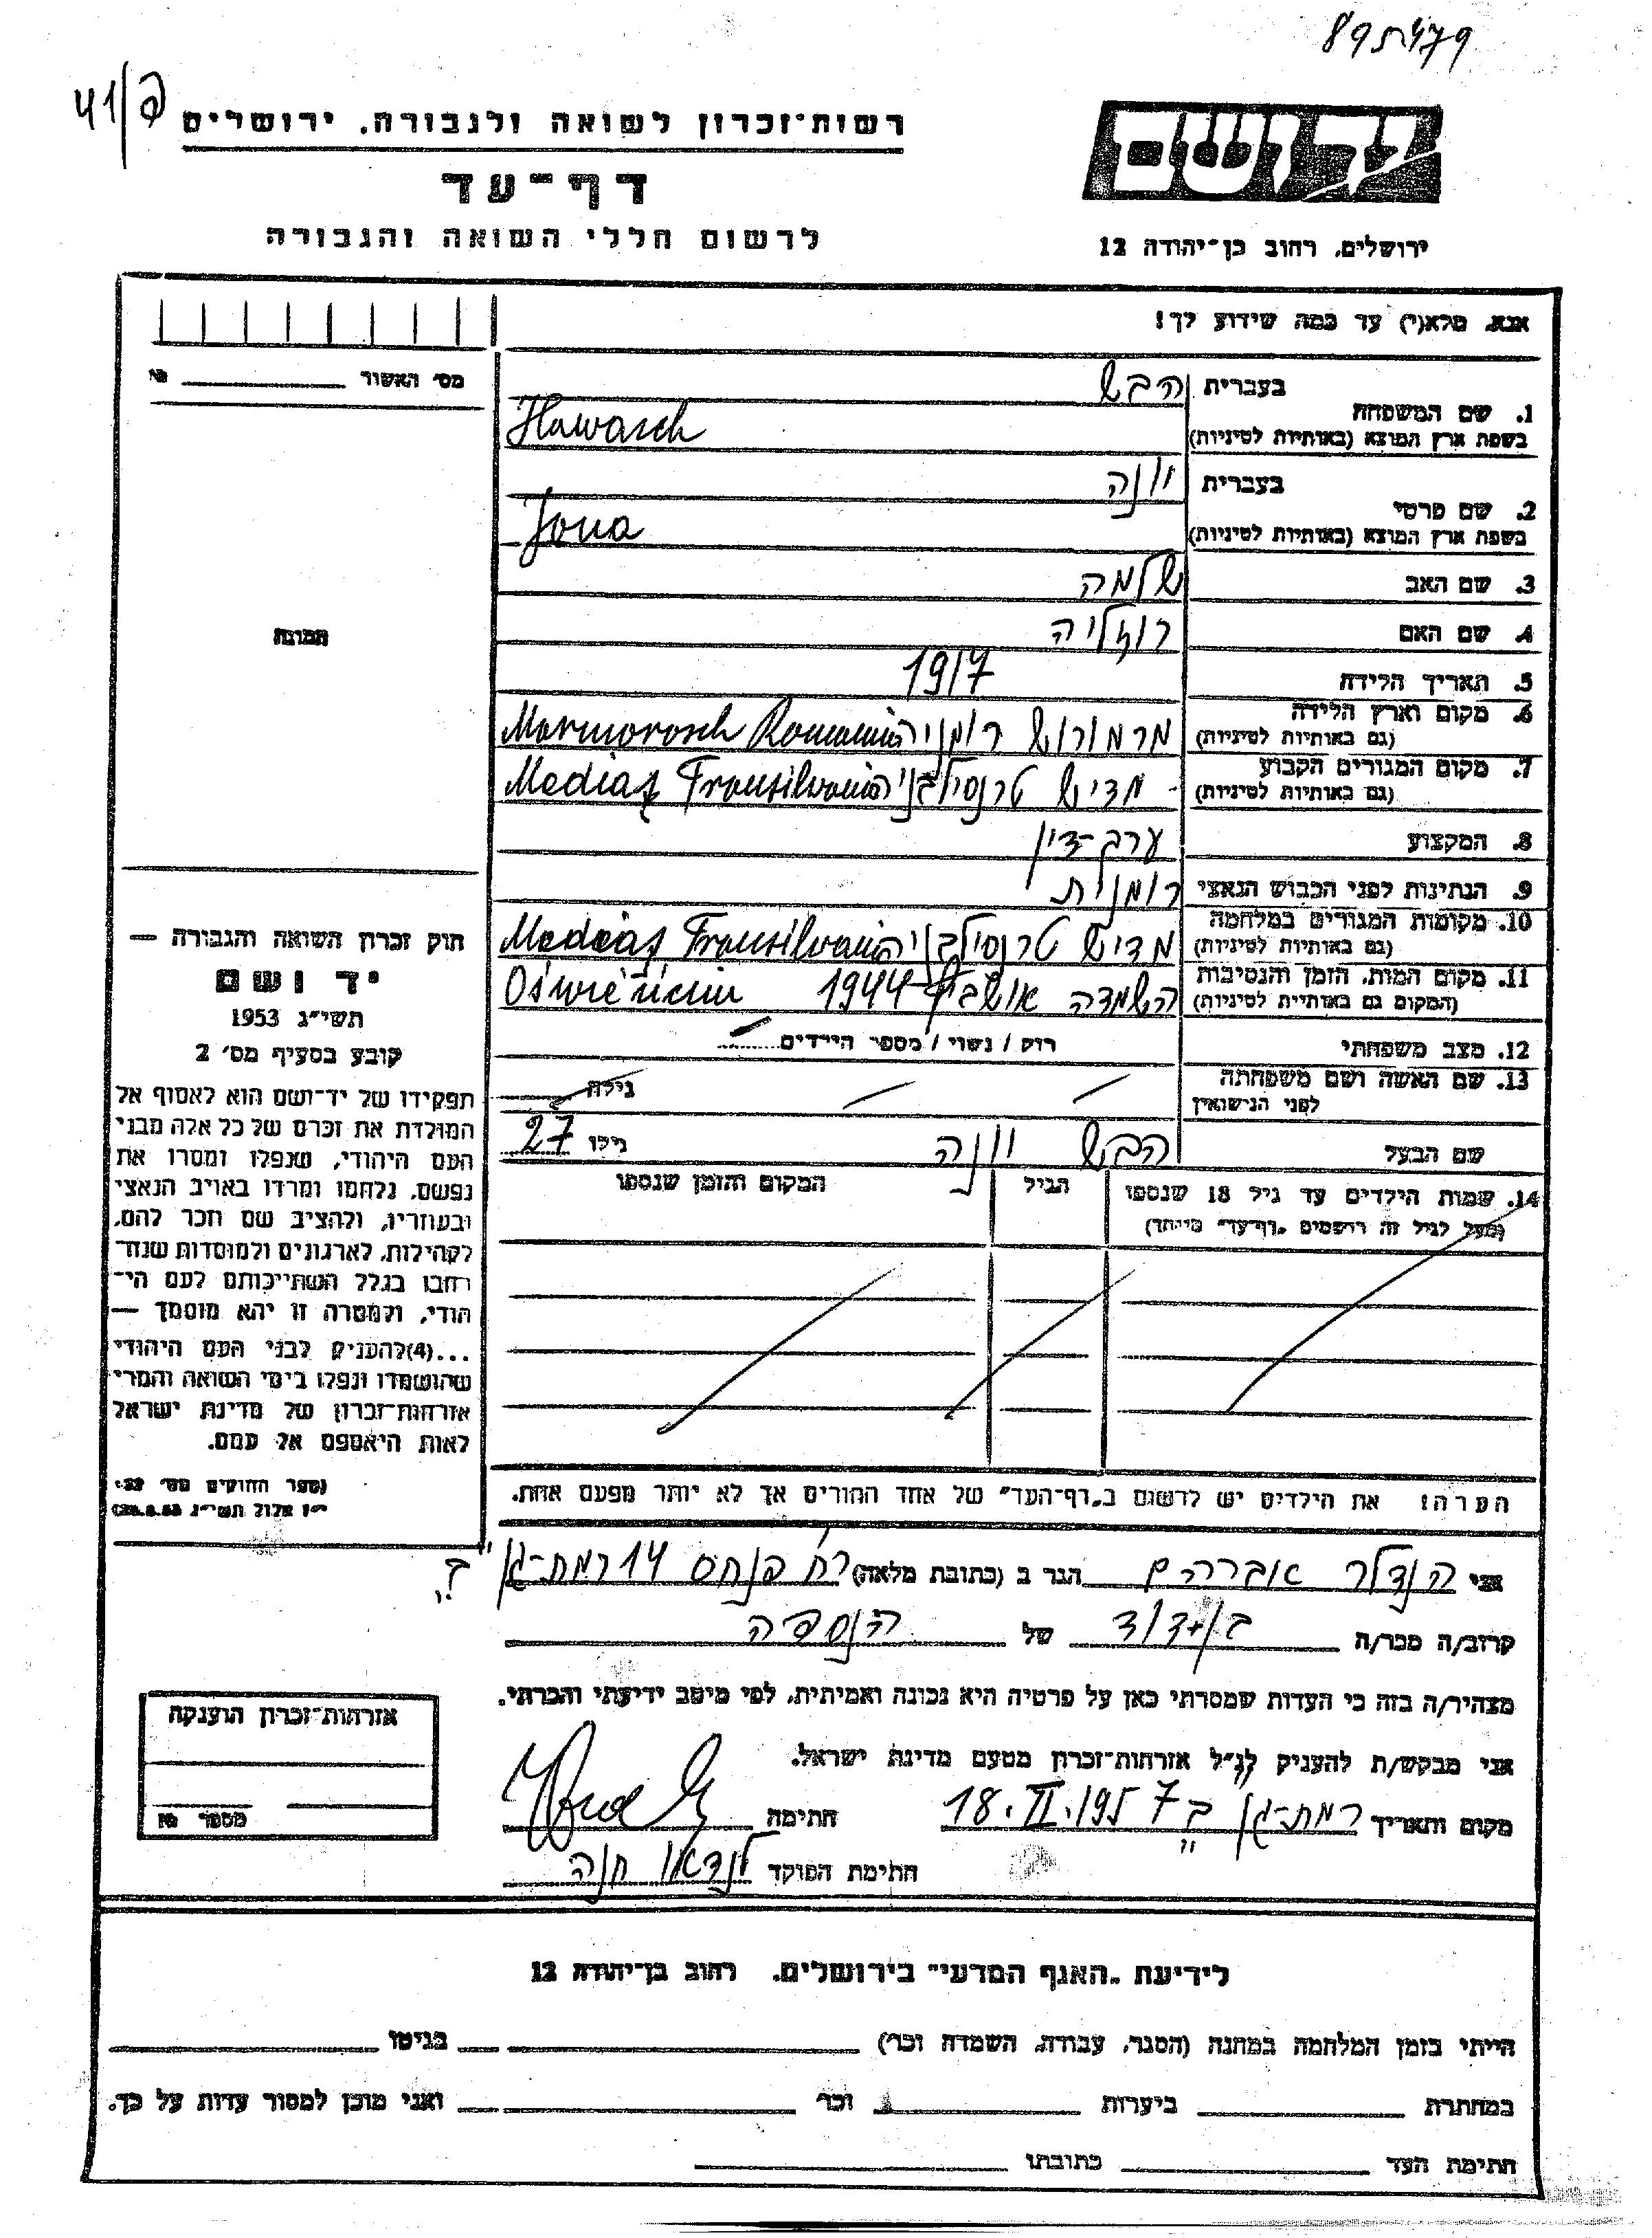 895479
41/ה
רשות־זכרון לשואה ולגבורה, ירושלים
דף־עד
לרשום חללי השואה והגבורה
יד ושם
ירושלים, רחוב בן־יהודה 12
אנא, מלא(י) עד כמה שידוע לך!
מס׳ האשור №
תמונה
1. שם המשפחה בעברית הבש
בשפת ארץ המוצא (באותיות לטיניות) Hawasch
2. שם פרטי בעברית יונה
בשפת ארץ המוצא (באותיות לטיניות) Jona
3. שם האב שלמה
4. שם האם רוזליה
5. תאריך הלידה 1917
6. מקום וארץ הלידה (גם באותיות לטיניות) מרמורוש רומניה Marmorosch Romania
7. מקום המגורים הקבוע (גם באותיות לטיניות) מדיש טרנסילבניה Mediaș Transilvania
8. המקצוע עורך-דין
9. הנתינות לפני הכבוש הנאצי רומנית
10. מקומות המגורים במלחמה (גם באותיות לטיניות) מדיש טרנסילבניה Mediaș Transilvania
11. מקום המות, הזמן והנסיבות (המקום גם באותיות לטיניות) השמדה אושביץ 1944 Oświęcim
12. מצב משפחתי רוק / נשוי / מספר הילדים
13. שם האשה ושם משפחתה לפני הנישואין גילה
שם הבעל הבש יונה גילו 27
14. שמות הילדים עד גיל 18 שנספו הגיל המקום והזמן שנספו
(מעל לגיל זה רושמים „דף־עד״ מיוחד)
הערה! את הילדים יש לרשום ב„דף־העד״ של אחד ההורים אך לא יותר מפעם אחת.
חוק זכרון השואה והגבורה —
יד ושם
תשי״ג 1953
קובע בסעיף מס׳ 2
תפקידו של יד־ושם הוא לאסוף אל
המולדת את זכרם של כל אלה מבני
העם היהודי, שנפלו ומסרו את
נפשם, נלחמו ומרדו באויב הנאצי
ובעוזריו, ולהציב שם וזכר להם,
לקהילות, לארגונים ולמוסדות שנח־
רבו בגלל השתייכותם לעם הי־
הודי, ולמטרה זו יהא מוסמך —
...(4)להעניק לבני העם היהודי
שהושמדו ונפלו בימי השואה והמרי
אזרחות־זכרון של מדינת ישראל
לאות היאספם אל עמם.
(ספר החוקים מס׳ 132,
י״ז אלול תשי״ג 28.8.53)
אני הנדלר אברהם הגר ב (כתובת מלאה) רח׳ פנחס 14 רמת-גן
קרוב/ה מכר/ה בן-דוד של הנספה
מצהיר/ה בזה כי העדות שמסרתי כאן על פרטיה היא נכונה ואמיתית, לפי מיטב ידיעתי והכרתי.
אני מבקש/ת להעניק לנ״ל אזרחות־זכרון מטעם מדינת ישראל.
מקום ותאריך רמת-גן 18.II.1957 חתימה
חתימת הפוקד לנדאו חנה
אזרחות־זכרון הוענקה
מספר №
לידיעת „האגף המדעי״ בירושלים, רחוב בן־יהודה 12
הייתי בזמן המלחמה במחנה (הסגר, עבודה, השמדה וכר) בגיטו
במחתרת ביערות וכר ואני מוכן למסור עדות על כך.
חתימת העד כתובתו